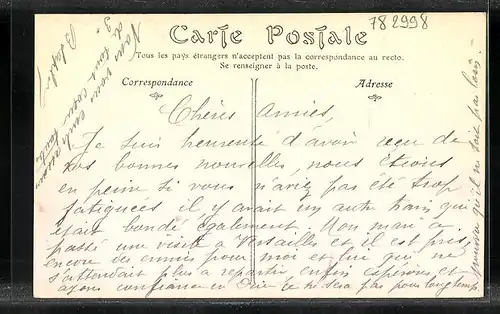 782998
Carte Postale
Tous les pays étrangers n'acceptent pas la correspondance au recto.
Se renseigner à la poste.
Correspondance
Adresse
Chères Amies,
Je suis heureuse d'avoir reçu de
vos bonnes nouvelles, nous étions
en peine si vous n'aviez pas été trop
fatiguées il y avait un autre train qui
était bondé également. Mon mari a
passé une visite à Versailles et il est pris,
encore des ennuis pour moi et lui qui ne
s'attendait plus à repartir enfin espérons et
ayons confiance en Dieu ce ne sera pas pour longtemps